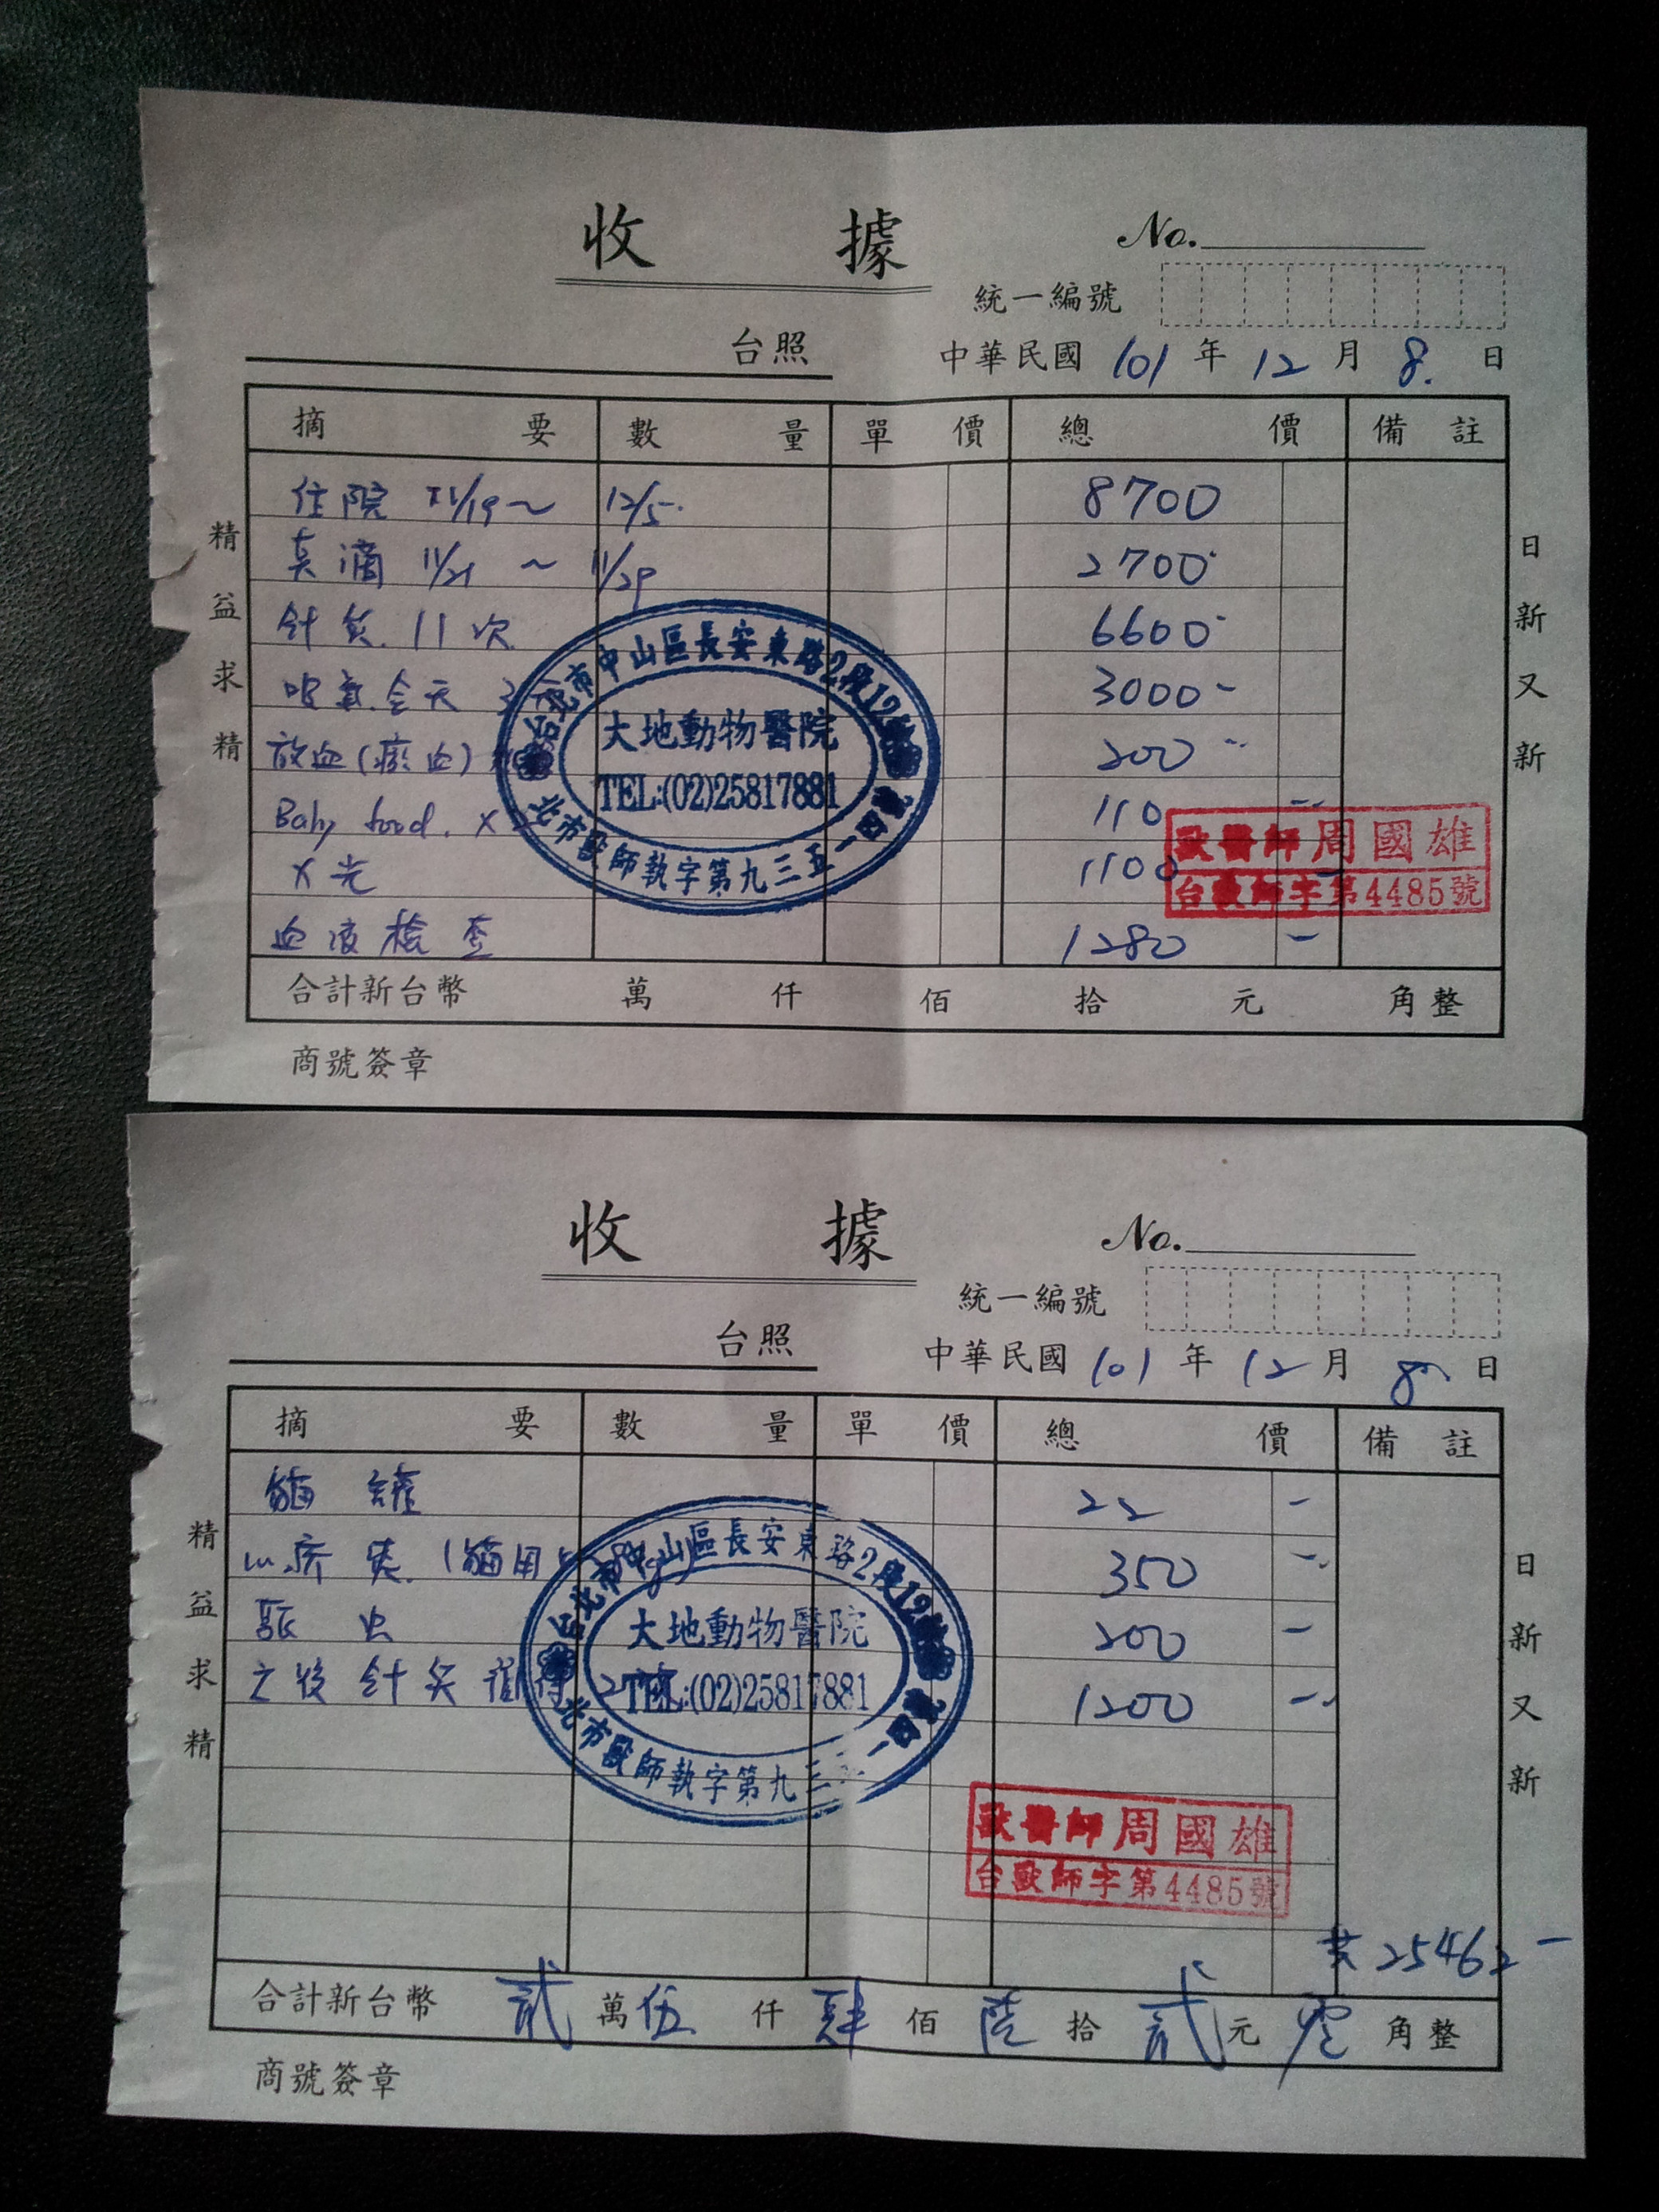 收據
No.
統一編號
台照
中華民國 101 年 12 月 8. 日
摘要 數量 單價 總價 備註
住院 11/19～ 12/5. 8700
點滴 11/21 ～ 11/29 2700
針灸. 11次 6600
吸氧.全天 3000-
放血(瘀血) 200
Baby food. x 110
X光 1100
血液檢查 1280 -
合計新台幣 萬 仟 佰 拾 元 角整
商號簽章
精益求精
日新又新
台北市中山區長安東路2段12
大地動物醫院
TEL:(02)25817881
北市獸師執字第九三五一四
獸醫師周國雄
台獸師字第4485號
收據
No.
統一編號
台照
中華民國 101 年 12 月 8 日
摘要 數量 單價 總價 備註
貓罐 22 -
心疥爽.(貓用 350 -
驅虫 200 -
之後針灸 1200 -
共25462-
合計新台幣 貳萬伍仟肆佰陸拾貳元零角整
商號簽章
精益求精
日新又新
台北市中山區長安東路2段12
大地動物醫院
TEL:(02)25817881
北市獸師執字第九三
獸醫師周國雄
台獸師字第4485號